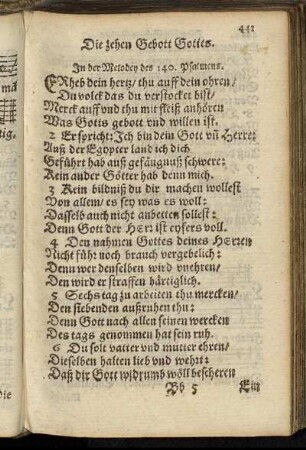 441
Die zehen Gebott Gottes.
In der Melodey des 140. Psalmens.
ERheb dein hertz/ thu auff dein ohren/
Du volck das du verstocket bist/
Merck auff vnd thu mit fleiß anhören
Was Gotts gebott vnd willen ist.
2 Er spricht: Ich bin dein Gott vñ Herre:
Auß der Egypter land ich dich
Geführt hab auß gefängnuß schwere:
Kein ander Götter hab denn mich.
3 Kein bildniß du dir machen wollest
Von allem/ es sey was es woll:
Dasselb auch nicht anbetten sollest:
Denn Gott der HErr ist eyfers voll.
4 Den nahmen Gottes deines HErren
Nicht führ noch brauch vergeblich:
Denn wer denselben wird vnehren/
Den wird er straffen härtiglich.
5 Sechs tag zu arbeiten thu mercken/
Den siebenden außruhen thu:
Denn Gott nach allen seinen wercken
Des tags genommen hat sein ruh.
6 Du solt vatter vnd mutter ehren/
Dieselben halten lieb vnd wehrt:
Daß dir Gott widrumb wöll bescheren
Bb 5 Ein